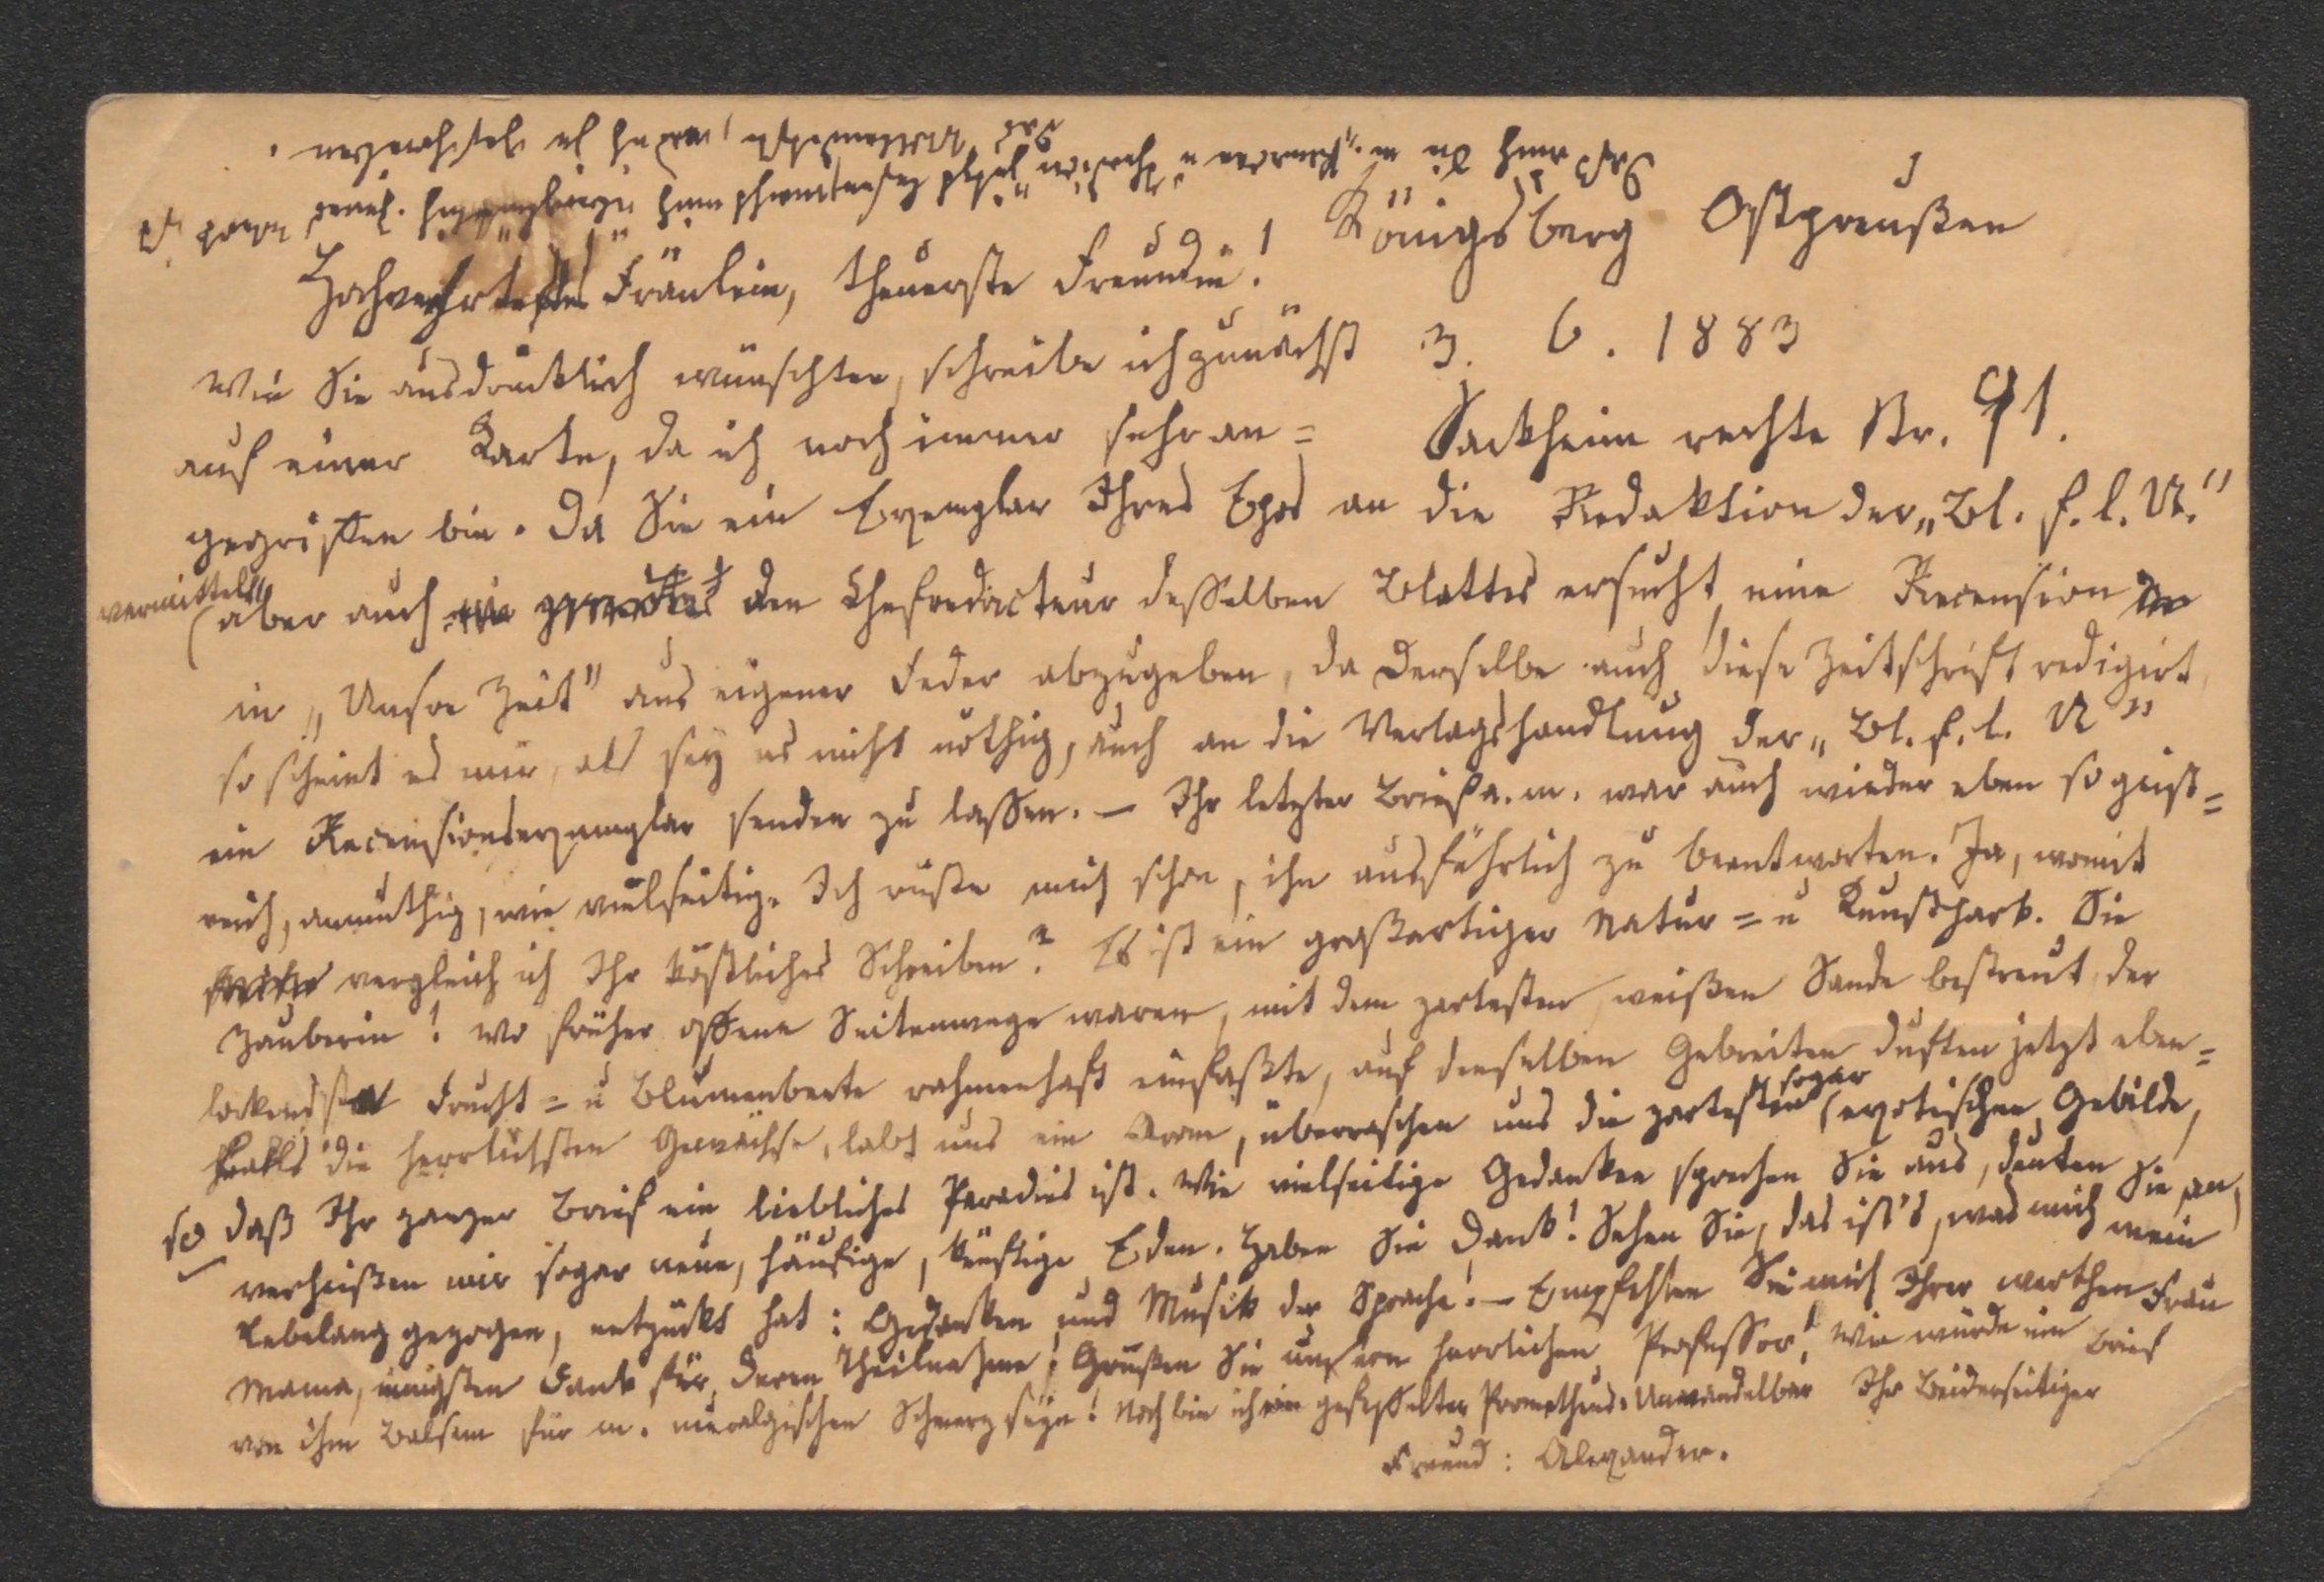 Königsberg Ostpreußen
Hochverehrtestes Fräulein, theuerste Freundin!
3. 6. 1883
Wie Sie ausdrücklich wünschten, schreibe ich zunächst
Sackheim rechte Str. 91.
auf einer Karte, da ich noch immer sehr an=
gegriffen bin. Da Sie ein Exemplar Ihres Epos an die Redaktion der „Bl. f. l. U."
vermittelst
aber auch den Chefredacteur desselben Blattes ersucht, eine Recension
in „Unsre Zeit" aus eigener Feder abzugeben, da derselbe auch diese Zeitschrift redigirt,
so scheint es mir, als sey es nicht nöthig, auch an die Verlagshandlung der „Bl. f. l. U"
ein Recensionsexemplar senden zu lassen. – Ihr letzter Brief a. m. war auch wieder eben so geist=
reich, anmuthig, wie vielseitig. Ich rüste mich schon, ihn ausführlich zu beantworten. Ja, womit
vergleich ich Ihr köstliches Schreiben? Es ist ein großartiger Natur= u Kunstpark. Sie
Zauberin! Wo früher offene Seitenwege waren, mit dem zartesten, weißen Sande bestreut, der
lockendst Frucht= u Blumenbeete rahmenhaft einfaßte, auf denselben Gebreiten duften jetzt eben=
falls die herrlichsten Gewächse, labt uns ein Arom, überraschen uns die zartesten sogar exotischen Gebilde,
so daß Ihr ganzer Brief ein liebliches Paradies ist. Wie vielseitige Gedanken sprechen Sie aus, deuten Sie an,
verheißen mir sogar neue, häufige, künftige Eden. Haben Sie Dank! Sehen Sie, das ist's, was mich mein
Lebelang gezogen, entzückt hat: Gedanken und Musik der Sprache! – Empfehlen Sie mich Ihrer werthen Frau
Mama, innigsten Dank für deren Theilnahme! Grüßen Sie unsern herrlichen Professor! Wie würde ein Brief
von ihm Balsam für m. neuralgischen Schmerz seyn! Noch bin ich ein gefesselter Prometheus. Unwandelbar Ihr Beiderseitiger
Freund: Alexander.